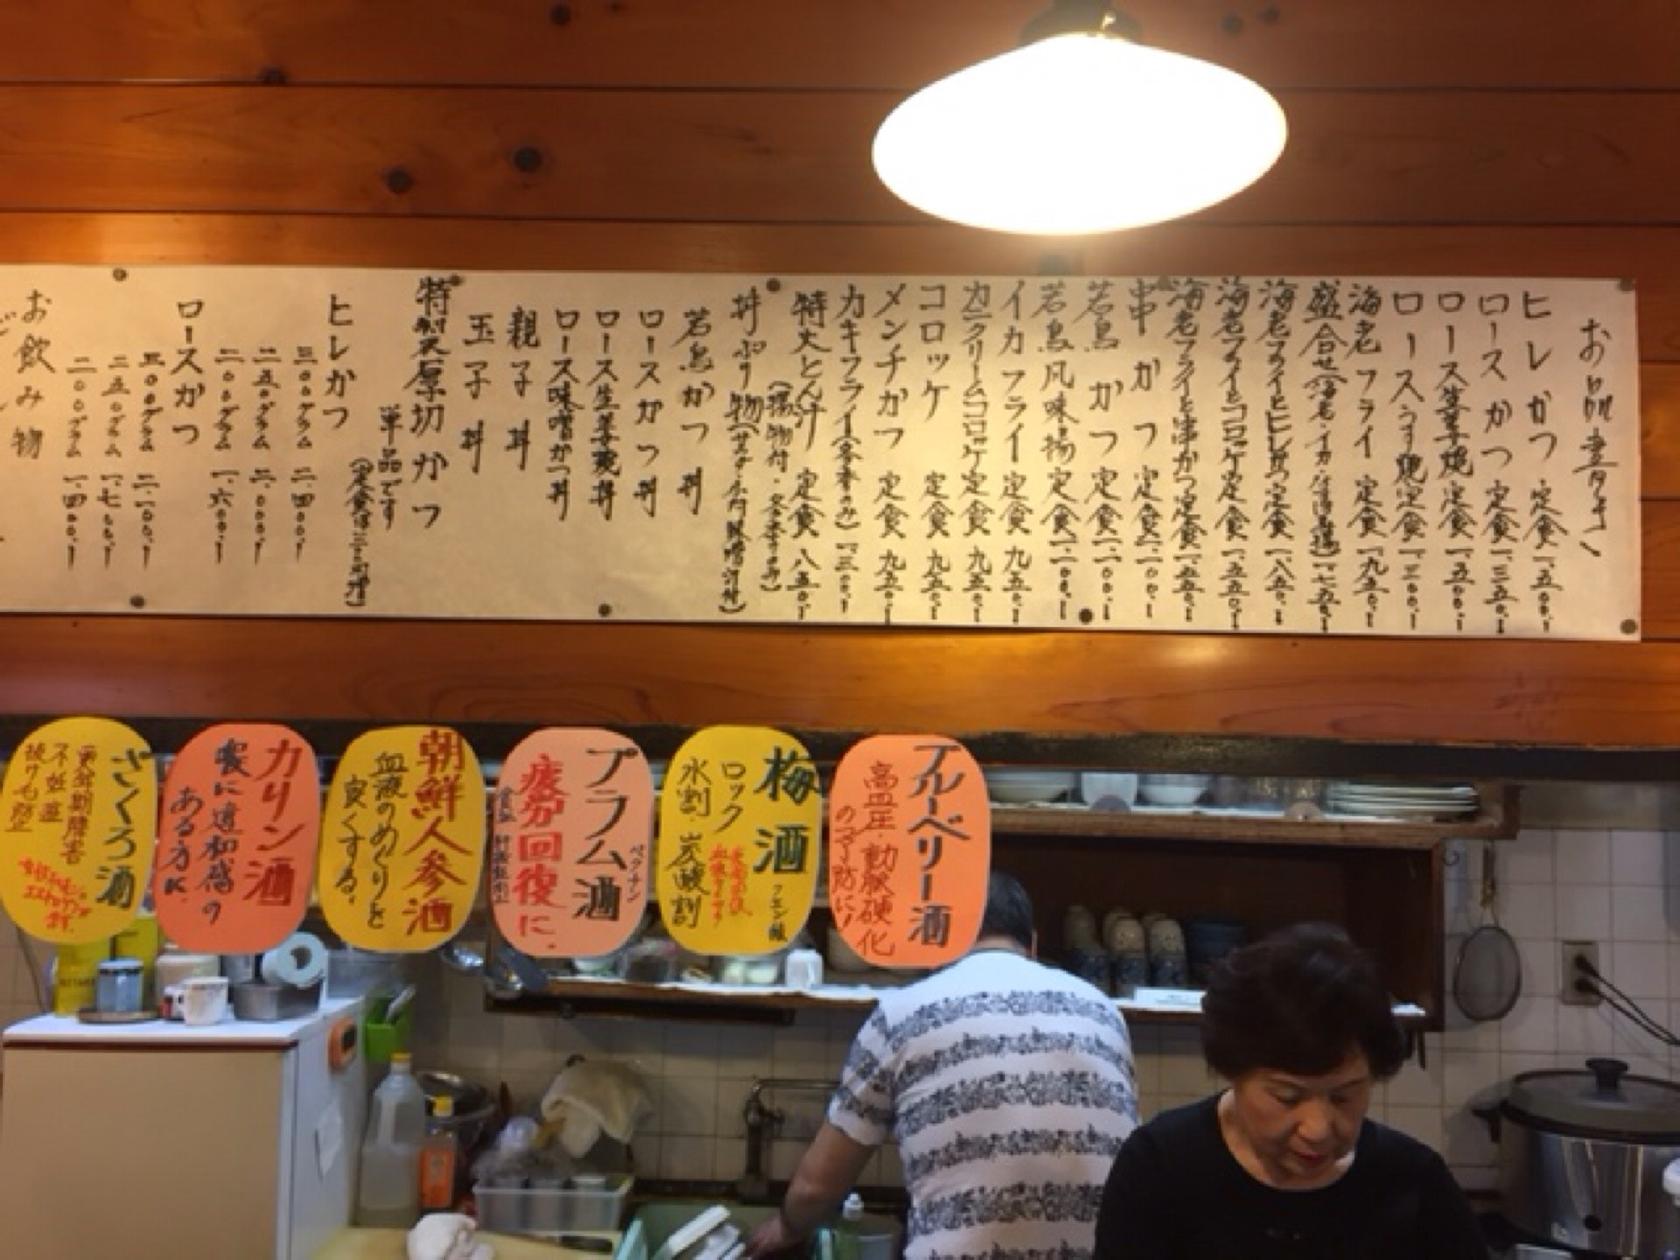 お品書き
ヒレかつ 定食 一、五〇〇、
ロースかつ 定食 一、三五〇、
ロース生姜焼 定食 一、五〇〇、
ロースうす焼 定食 一、三〇〇、
海老フライ 定食 一、九五〇、
盛合せ(海老・イカ・ 一、七五〇、
海老フライとヒレかつ 定食 一、八五〇、
海老フライとコロッケ 定食 一、五五〇、
海老フライと串かつ 定食 一、五五〇、
串かつ 定食 一、一〇〇、
若鳥かつ 定食 一、一〇〇、
若鳥風味揚 定食 一、一〇〇、
イカフライ 定食 九五〇、
カニクリームコロッケ 定食 九五〇、
コロッケ 定食 九五〇、
メンチかつ 定食 九五〇、
カキフライ(冬季のみ) 一、三〇〇、
特大とん汁 定食 八五〇、
丼ぷり物
若鳥かつ丼
ロースかつ丼
ロース生姜焼丼
ロース味噌かつ丼
親子丼
玉子丼
特製天厚切かつ
単品です
ヒレかつ
三〇〇グラム 二、四〇〇、
二五〇グラム 二、〇〇〇、
二〇〇グラム 一、六〇〇、
ロースかつ
三〇〇グラム 二、一〇〇、
二五〇グラム 一、七〇〇、
二〇〇グラム 一、四〇〇、
お飲み物
ブルーベリー酒
高血圧 動脈硬化
の予防に!
梅酒 クエン酸
ロック
水割・炭酸割
プラム酒 ペクチン
疲労回復に、
朝鮮人参酒
血液のめぐりを
良くする。
カリン酒
喉に違和感の
ある方に、
ざくろ酒
更年期障害
不妊症
抜け毛防止